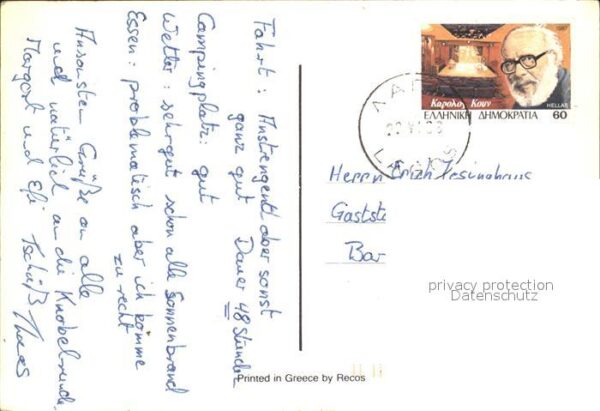 Fahrt: Anstrengend aber sonst
ganz gut Dauer 48 Stunden
Campingplatz: gut
Wetter: sehr gut schon alle Sonnenbrand
Essen: problematisch aber ich komme
zu recht
Ansonsten Grüße an alle
und natürlich an die Knobelrunde,
Margret und Efi Tschüß
Καρολος Κουν
1987
HELLAS
ΕΛΛΗΝΙΚΗ ΔΗΜΟΚΡΑΤΙΑ 60
Herrn Erich
Gastst
Bar
privacy protection
Datenschutz
Printed in Greece by Recos